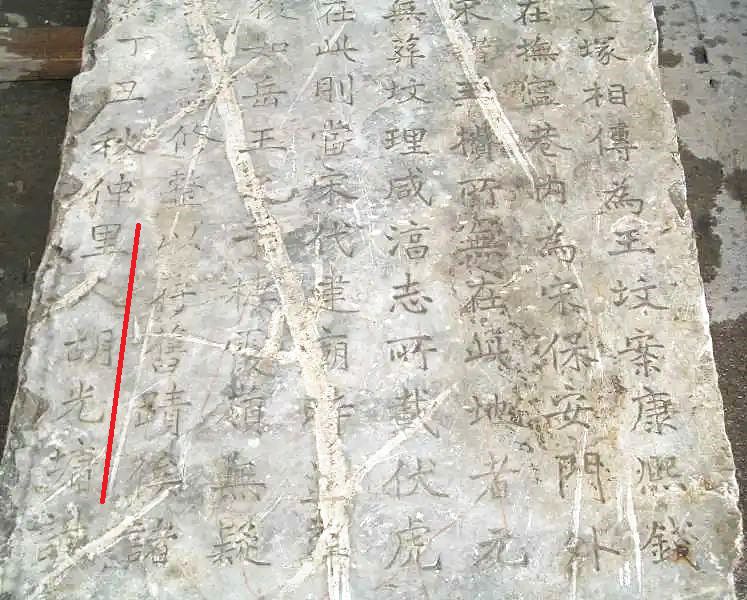 大塚相傳為王墳案康熙錢
在撫寧巷內為宋保安門外
宋 王攢所無在此地者元
無葬墳理咸淳志所載伏虎
在此則當宋代建廟時
後如岳王 于棲霞嶺無疑
修整以符舊蹟後諸
丁丑秋仲里人胡光墉識